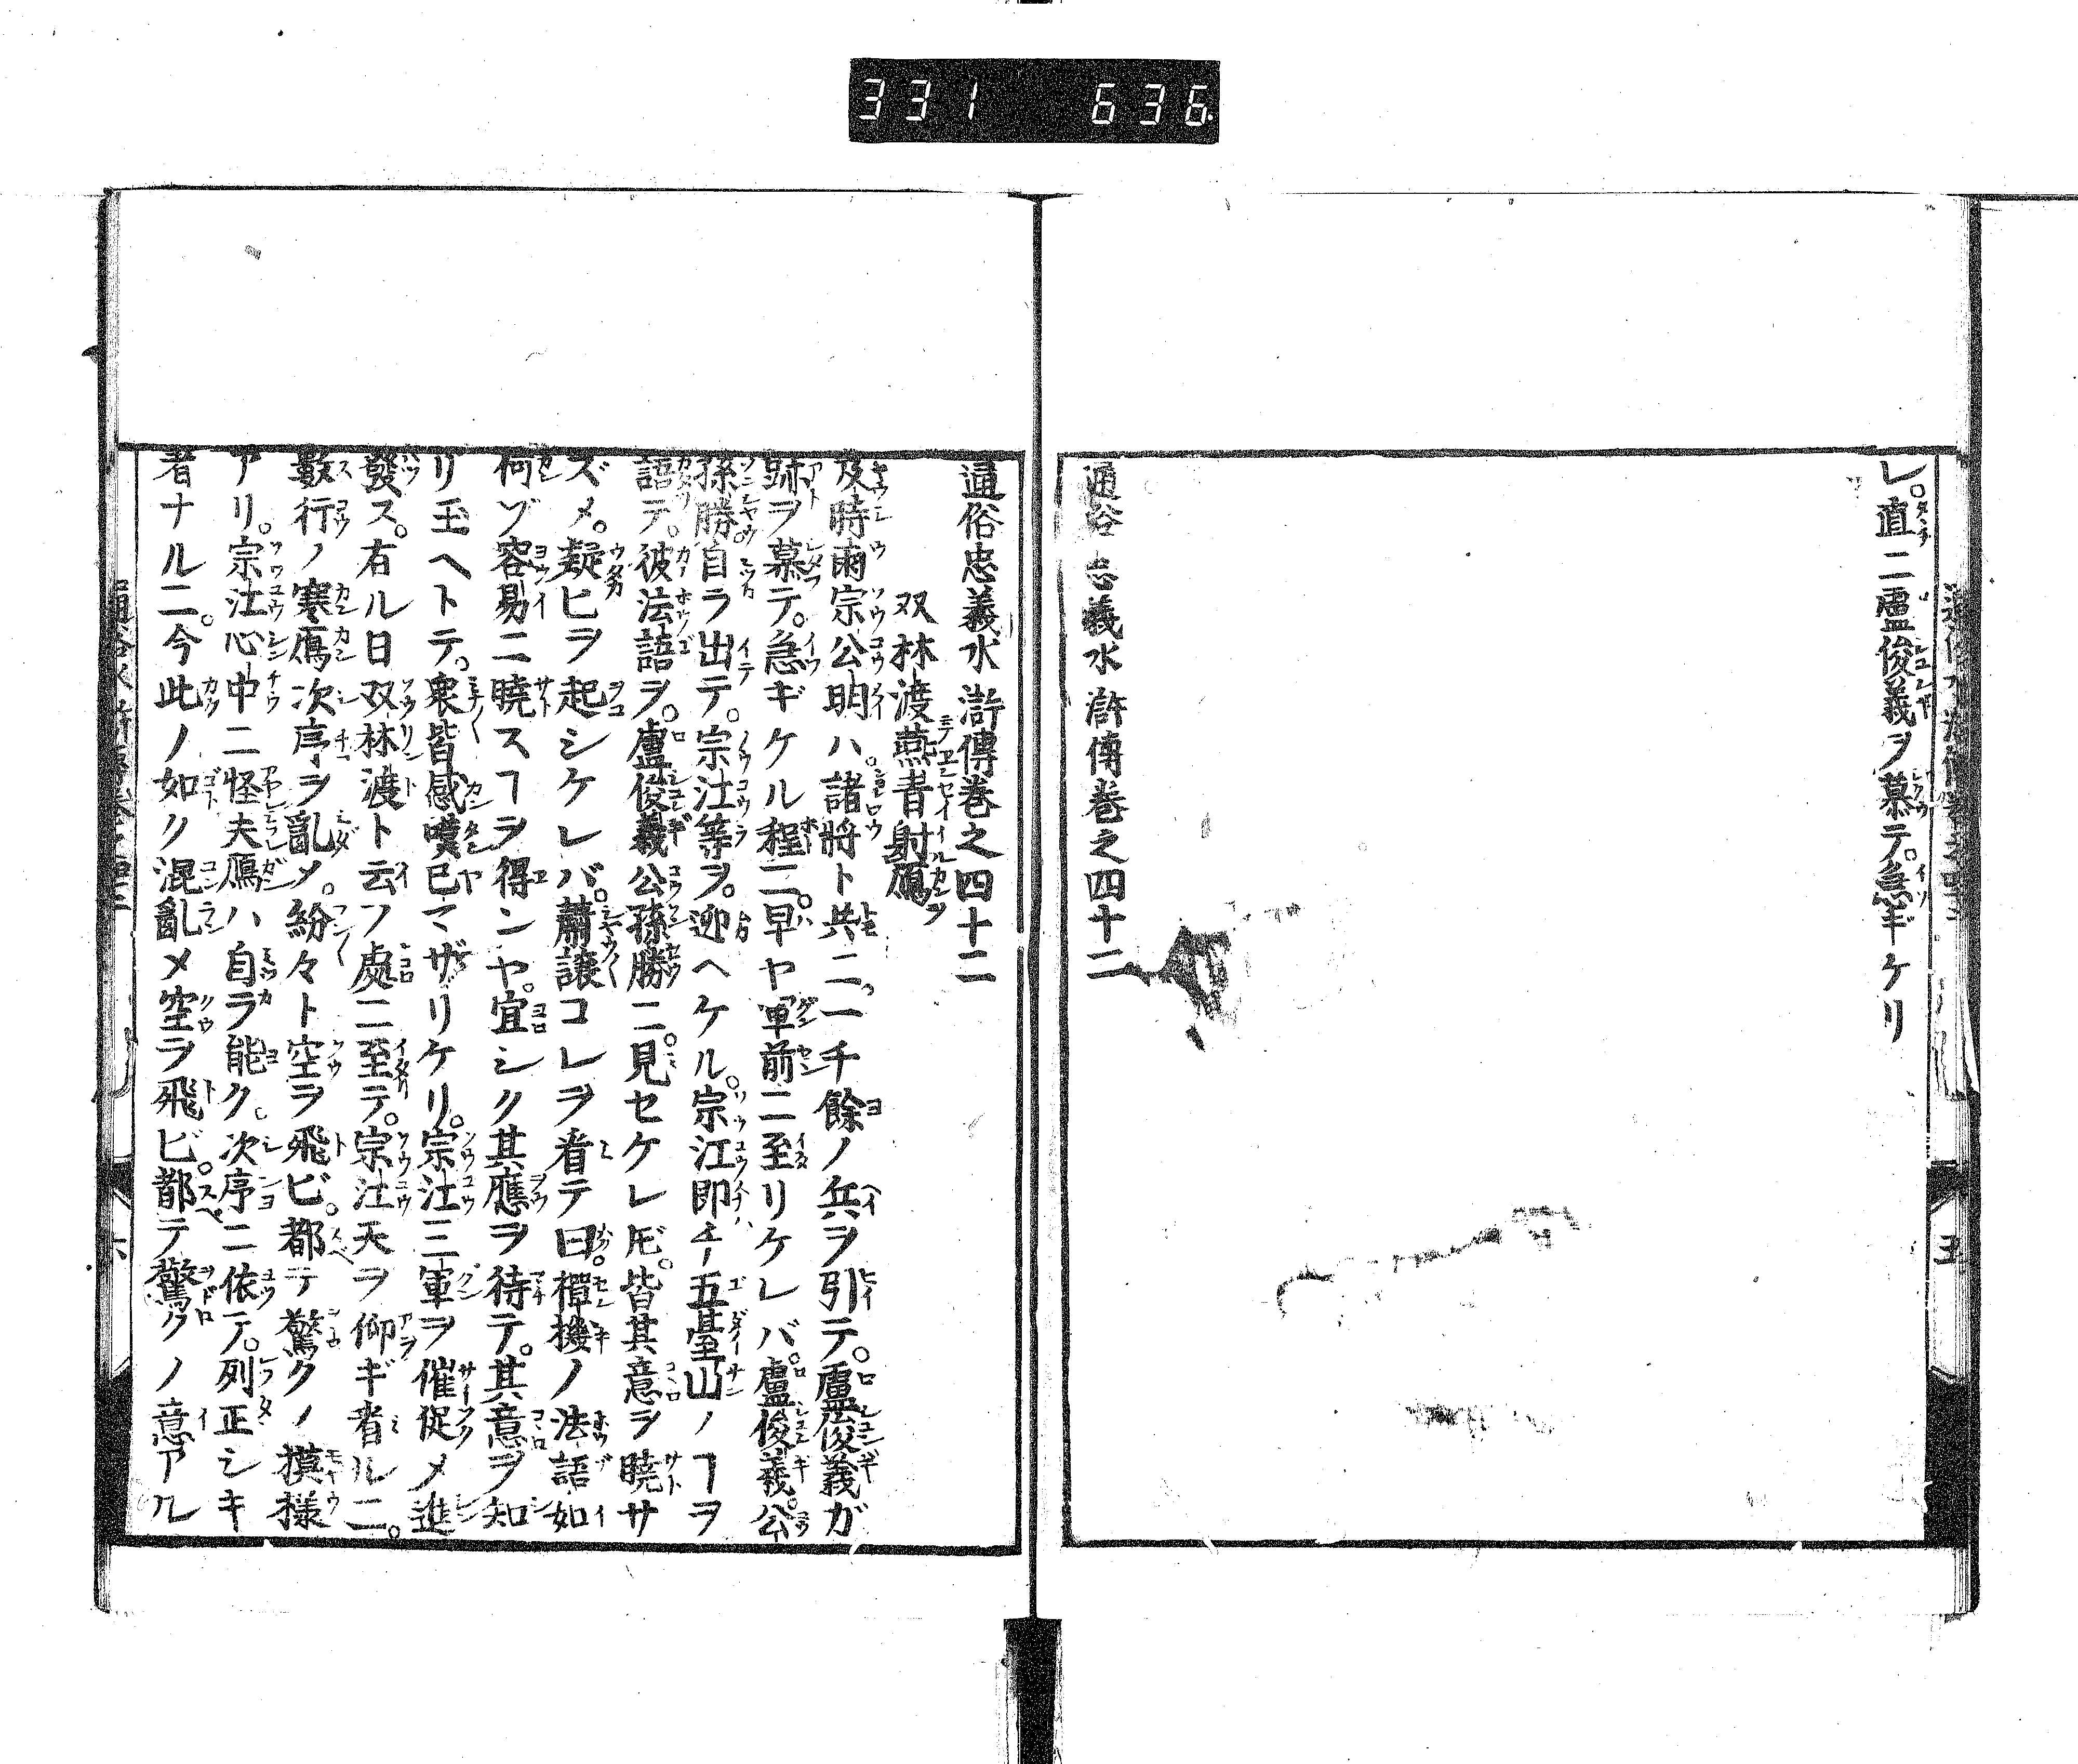 331 636
レ。直ニ盧俊義ヲ慕テ。急ギケリ
通俗忠義水滸傳巻之四十二
通俗忠義水滸傳巻之四十二
双林渡燕青射鴈
及時雨宗公明ハ。諸將ト共ニ一千餘ノ兵ヲ引テ。盧俊義ガ
跡ヲ慕テ。急ギケル程ニ。早ヤ軍前ニ至リケレバ。盧俊義。公
孫勝自ラ出テ。宗江等ヲ。迎ヘケル。宗江即チ五臺山ノヿヲ
語テ。彼法語ヲ。盧俊義公孫勝ニ。見セケレ𪜈。皆其意ヲ曉サ
ズメ。疑ヒヲ起シケレバ。蕭譲コレヲ看テ曰。禪機ノ法語如
何ゾ容易ニ曉スヿヲ得ンヤ。宜シク其應ヲ待テ。其意ヲ知
リ玉ヘトテ。衆皆感嘆已マザリケリ。宗江三軍ヲ催促メ進
發ス。有ル日双林渡ト云フ處ニ至テ。宗江天ヲ仰ギ看ルニ。
數行ノ寒鴈次序ヲ亂メ。紛々ト空ヲ飛ビ。都テ驚クノ摸様
アリ。宗江心中ニ怪夫鴈ハ自ラ能ク。次序ニ依テ。列正シキ
者ナルニ。今此ノ如ク混亂メ空ヲ飛ビ。都テ驚クノ意アル
五
六